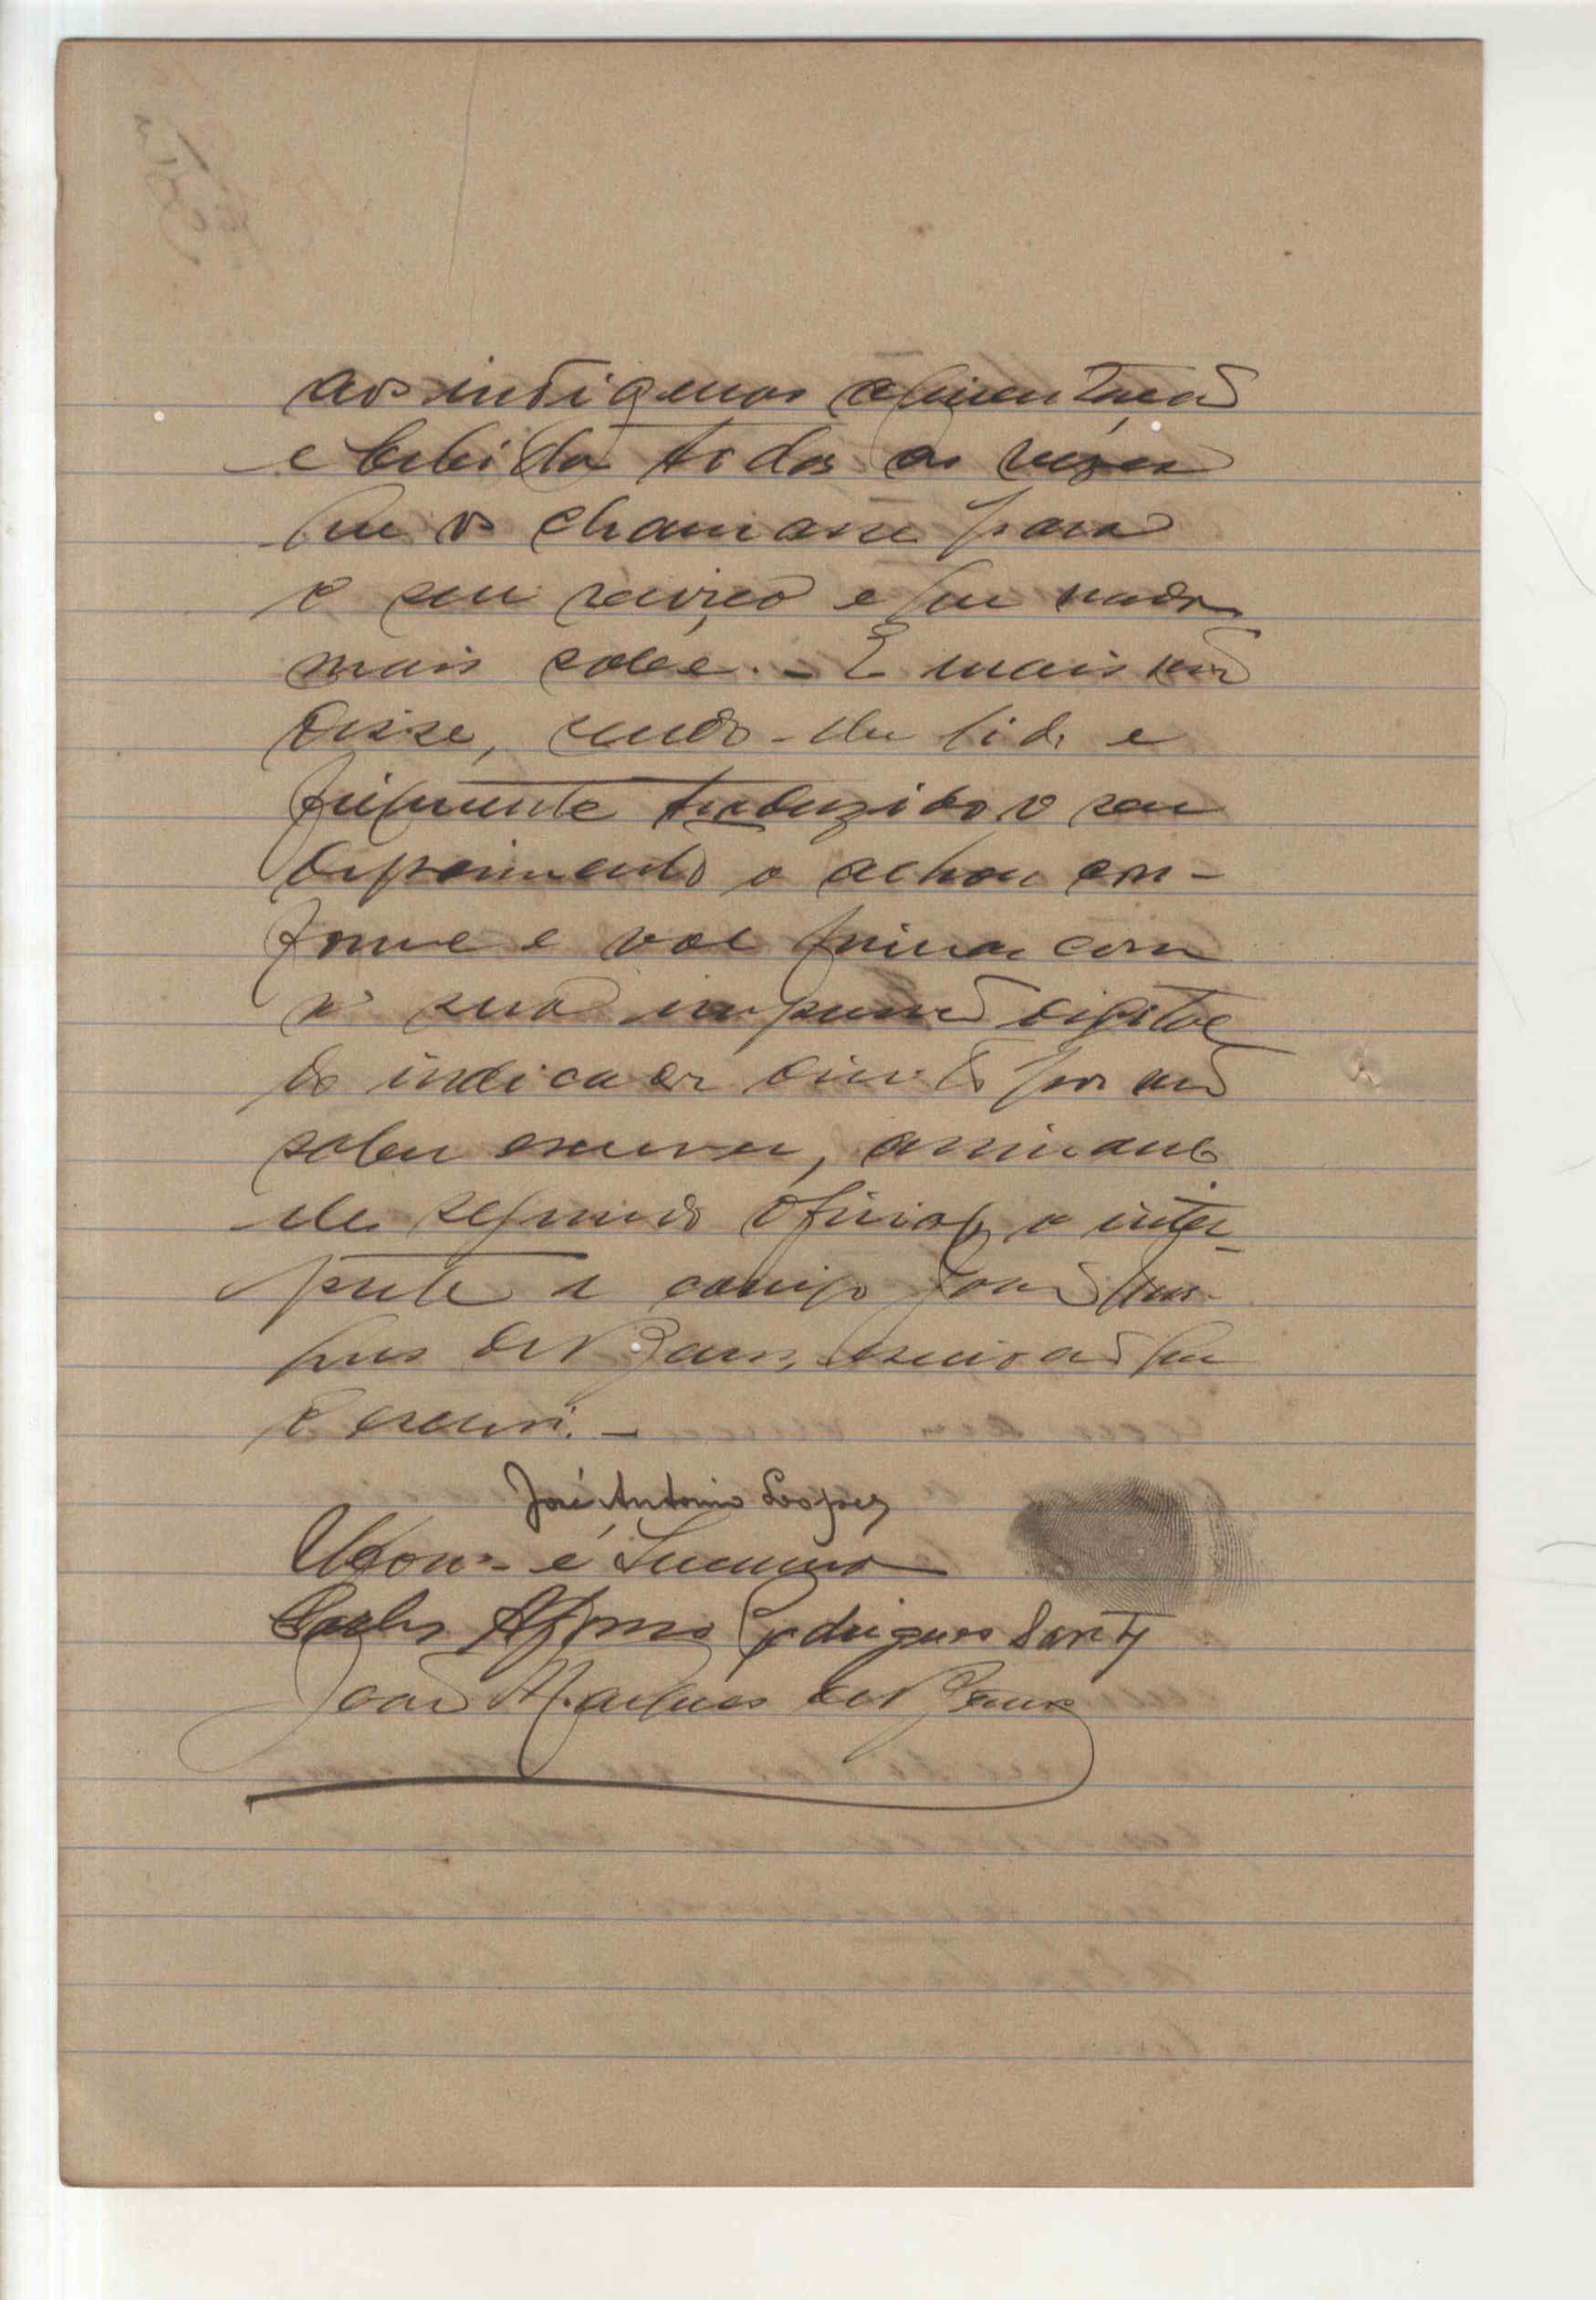 aos indigenas alimentação
e bebida todas as vezes
que os chamasse para
o seu serviço e que nada
mais sabe. - E mais não
disse, sendo-lhe lido e
fielmente traduzido o seu
depoimento o achou con-
forme e vae firmar com
a sua impressão digital
do indicador direito por não
saber escrever, assinando
ele segundo oficial, o inter-
prete e comigo João Mar-
ques de Barros, escrivão que
o escrevi. -
José Antonio Lopes
é
Carlos Afonso Rodrigues
João Marques de Barros